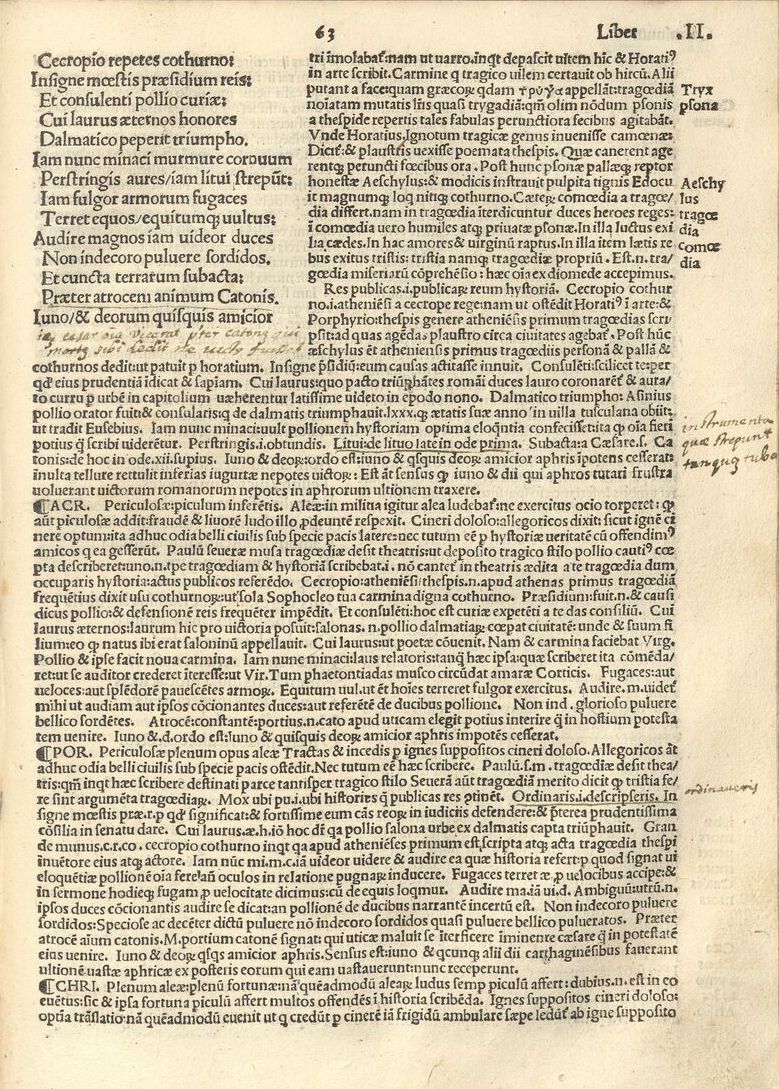 63 Liber .II.
Cecropio repetes cothurno:
Insigne mœstis præsidium reis:
Et consulenti pollio curiæ:
Cui laurus æternos honores
Dalmatico peperit triumpho.
Iam nunc minaci murmure cornuum
Perstringis aures/iam litui strepūt:
Iam fulgor armorum fugaces
Terret equos/equitumq; uultus:
Audire magnos iam uideor duces
Non indecoro puluere sordidos.
Et cuncta terrarum subacta:
Præter atrocem animum Catonis.
Iuno/& deorum quisquis amicior
tri īmolabat̃:nam ut uarro.inq̃t depascit uitem hic & Horatiꝰ
in arte scribit. Carmine q tragico uilem certauit ob hircū. Alii
putant a fæce:quam græcoꝝ qdam τρύγα appellāt:tragœdiā
noīatam mutatis lr̃is quasi trygadiā:qm̄ olim nōdum ꝑsonis
a thespide repertis tales fabulas peruncti ora fecibus agitabāt.
Vnde Horatius.Ignotum tragicæ genus inuenisse camœnæ
Dicit̃:& plaustris uexisse poemata thespis. Quæ canerent age
rentq; peruncti fœcibus ora. Post hunc ꝑsonæ pallæq; reptor
honestæ Aeschylus:& modicis instrauit pulpita tignis Edocu
it magnumq; loq nitiq; cothurno. Cæteꝝ comœdia a tragœ/
dia differt.nam in tragœdia īterdicuntur duces heroes reges:
ī comœdia uero humiles atq; priuatæ ꝑsonæ.In illa luctus exi
lia cædes.In hac amores & uirginū raptus.In illa item lætis re
bus exitus tristis: tristia namq; tragœdiæ propriū. Est.n.tra/
gœdia miseriaꝝ cōprehēsio: hæc oīa ex diomede accepimus.
Res publicas.i.publicaꝝ reꝝ hystoriā. Cecropio cothur
no.i.atheniēsi a cecrope rege:nam ut ostēdit Horatiꝰ ī arte:&
Porphyrio:thespis genere atheniēsis primum tragœdias scri
psit:ad quas agēdas plaustro circa ciuitates agebat̃. Post hūc
æschylus et atheniensis primus tragœdiis personā & pallā &
Tryx
psona
Aeschy
lus
tragœ
dia
comœ
dia
cothurnos dedit:ut patuit ꝑ horatium. Insigne p̃sidiū:eum causas actitasse innuit. Consulēti:scilicet te:per
qd̃ eius prudentiā īdicat & sapiam. Cui laurus:quo pacto triūphātes romāi duces lauro coronarēt̃ & aura/
to curru ꝑ urbē in capitolium uæherentur latissime uideto in epodo nono. Dalmatico triumpho: Asinius
pollio orator fuit:& consularis:q de dalmatis triumphauit.lxxx.q; ætatis suæ anno in uilla tusculana obiit:
ut tradit Eusebius. Iam nunc minaci:uult pollionem hystoriam optima eloq̄ntia confecisse:ita ꝙ oīa fieri
potius q̃ scribi uiderētur. Perstringis.i.obtundis. Litui:de lituo late in ode prima. Subacta:a Cæsare.s. Ca
tonis:de hoc in ode.xii.supius. Iuno & deoꝝ:ordo est:iuno & qsquis deoꝝ amicior aphris īpotens cesserat:
inulta tellure rettulit inferias iugurtæ nepotes uictoꝝ: Est āt sensus ꝙ iuno & dii qui aphros tutari frustra
uoluerant uictorum romanorum nepotes in aphrorum ultionem traxere.
¶ACR. Periculosæ:piculum inferētis. Aleæ:in militia igitur alea ludebat̃:ne exercitus ocio torperet: ꝙ
aūt piculosæ addit:fraudē & liuorē ludo illo ꝓdeunte respexit. Cineri doloso:allegoricos dixit: sicut ignē ci
nere optum:ita adhuc odia belli ciuilis sub specie pacis latere:nec tutum eē ꝑ hystoriæ ueritatē cū offendim̃
amicos q ea gesserūt. Paulū seueræ musa tragœdiæ desit theatris:ut deposito tragico stilo pollio cautiꝰ cœ
pta describeret:uno.n.tꝑe tragœdiam & hystoriā scribebat.i. nō cantet̃ in theatris ædita a te tragœdia dum
occuparis hystoria:actus publicos referēdo. Cecropio:atheniēsi:thespis.n.apud athenas primus tragœdiā
frequētius dixit usu cothurnoꝝ:ut̃ sola Sophocleo tua carmina digna cothurno. Præsidium:fuit.n.& causi
dicus pollio:& defensionē reis frequēter impēdit. Et consulēti:hoc est curiæ expetēti a te das consiliū. Cui
laurus æternos:laurum hic pro uictoria posuit:salonas.n.pollio dalmatiæ cœpat ciuitatē: unde & suum fi
lium:eo ꝙ natus ibi erat saloninū appellauit. Cui laurus:ut poetæ cōuenit. Nam & carmina faciebat Virg.
Pollio & ipse facit noua carmina. Iam nunc minaci:laus relatoris:tanq̃ hæc ipsa:quæ scriberet ita cōmēda/
ret:ut se auditor crederet īteresse:ut Vir.Tum phaetontiadas musco circūdat amaræ Corticis. Fugaces:aut
ueloces:aut splēdorē pauescētes armoꝝ. Equitum uul.ut & hoīes terreret fulgor exercitus. Audire.m.uidet̃
mihi ut audiam aut ipsos cōcionantes duces:aut referētē de ducibus pollione. Non ind. glorioso puluere
bellico sordētes. Atrocē:constantē:portius.n.cato apud uticam elegit potius interire q̃ in hostium potesta
tem uenire. Iuno &.d.ordo est:Iuno & quisquis deoꝝ amicior aphris impotēs cesserat.
¶POR. Periculosæ plenum opus aleæ Tractas & incedis ꝑ ignes suppositos cineri doloso.Allegoricos āt
adhuc odia belli ciuilis sub specie pacis ostēdit.Nec tutum eē hæc scribere. Paulū.s.m. tragœdiæ desit thea/
tris:qm̄ inq̃t hæc scribere destinati parce tantisper tragico stilo Seuerā aūt tragœdiā merito dicit ꝙ tristia fe/
re sint argumēta tragœdiaꝝ. Mox ubi pu.i.ubi historiæ q̃ publicas res ꝯtinēt. Ordinaris.i.descripseris. In
signe mœstis præ.r.ꝑ qd̃ significat:& fortissime eum cās reoꝝ in iudiciis defendere:& p̃terea prudentissima
cōsilia in senatu dare. Cui laurus.æ.h.iō hoc dr̃ qa pollio salona urbe ex dalmatis capta triūphauit. Gran
de munus.c.r.co. cecropio cothurno inq̃t qa apud atheniēses primum est scripta atq; acta tragœdia thespi
inuētore eius atq; actore. Iam nūc mi.m.c.iā uideor uidere & audire ea quæ historia refert:ꝑ quod signat ui
eloquētiæ pollionē oīa fere/añ oculos in relatione pugnaꝝ inducere. Fugaces terret æ ꝓ uelocibus accipe:&
in sermone hodieq; fugam ꝓ uelocitate dicimus:cū de equis loqmur. Audire ma.iā ui.d. Ambiguū:utrū.n.
ipsos duces cōcionantis audire se dicat:an pollionē de ducibus narrantē incertū est. Non indecoro puluere
sordidos:Speciose ac decēter dictū puluere nō indecoro sordidos quasi puluere bellico pulueratos. Præter
atrocē aīum catonis.M.portium catonē signat: qui uticæ maluit se īterficere iminente cæsare q̃ in potestatē
eius uenire. Iuno & deoꝝ qsqs amicior aphris.Sensus est:iuno & qcunq; alii dii carthaginēsibus fauerant
ultionē uastæ aphricæ ex posteris eorum qui eam uastauerunt:nunc receperunt.
¶CHRI. Plenum aleæ:plenū fortunæ:nā quēadmodū aleaꝝ ludus semp piculū affert: dubius.n. est in eo
euētus:sic & ipsa fortuna piculū affert multos offendēs ī historia scribēda. Ignes suppositos cineri doloso:
optīa trāslatio:nā quēadmodū euenit ut q credūt ꝑ cinerē iā frigidū ambulare sæpe ledūt̃ ab igne supposito
instrumenta
quæ strepunt
tanquã tuba
ordinaueris